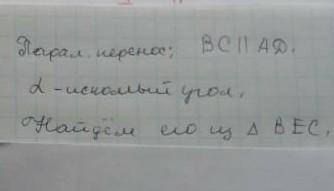 Парал. перенос: BC || AD.
α - искомый угол.
Найдём его из Δ BEC.